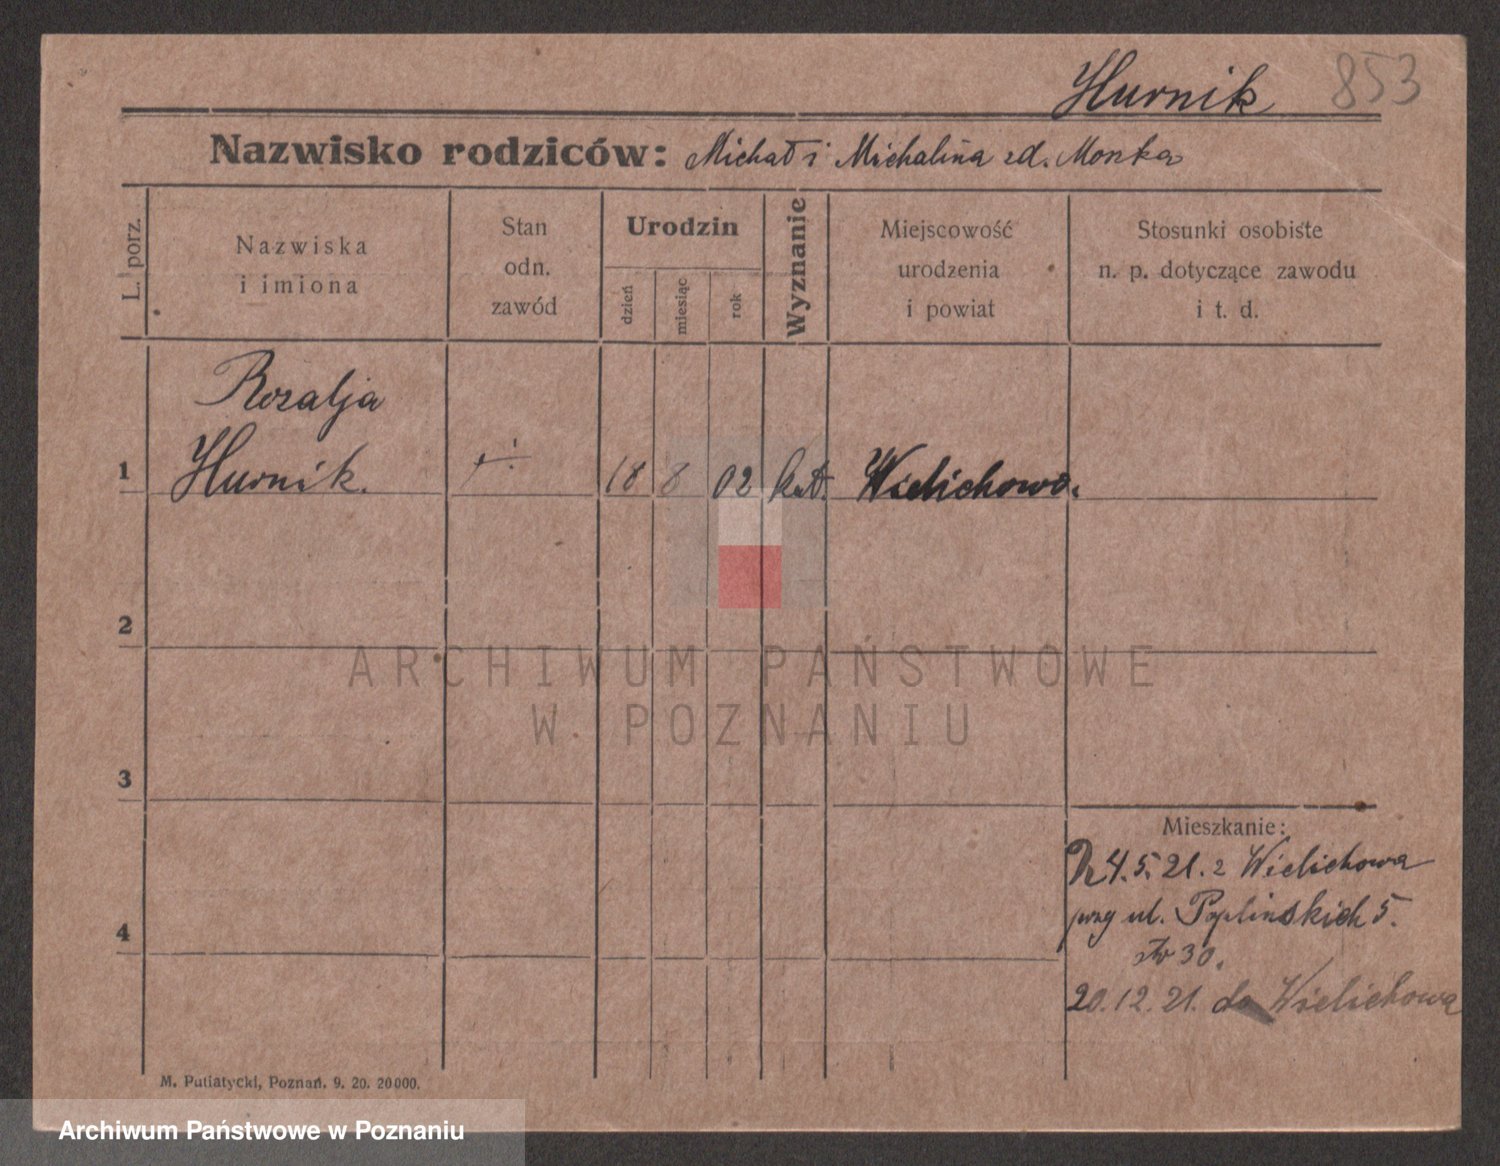 Hurnik 853
Nazwisko rodziców: Michał i Michalina zd. Monka
L. porz.
Nazwiska
i imiona
Stan
odn.
zawód
Urodzin
dzień
miesiąc
rok
Wyznanie
Miejscowość
urodzenia
i powiat
Stosunki osobiste
n. p. dotyczące zawodu
i t. d.
Rozalja
1 Hurnik. 18 8 02 kat. Wielichowo.
2
ARCHIWUM PAŃSTWOWE
W POZNANIU
3
Mieszkanie:
4.5.21. z Wielichowa
przy ul. Poplinskich 5.
4
30.
20.12.21. do Wielichowa
M. Putiatycki, Poznań. 9. 20. 20000.
Archiwum Państwowe w Poznaniu